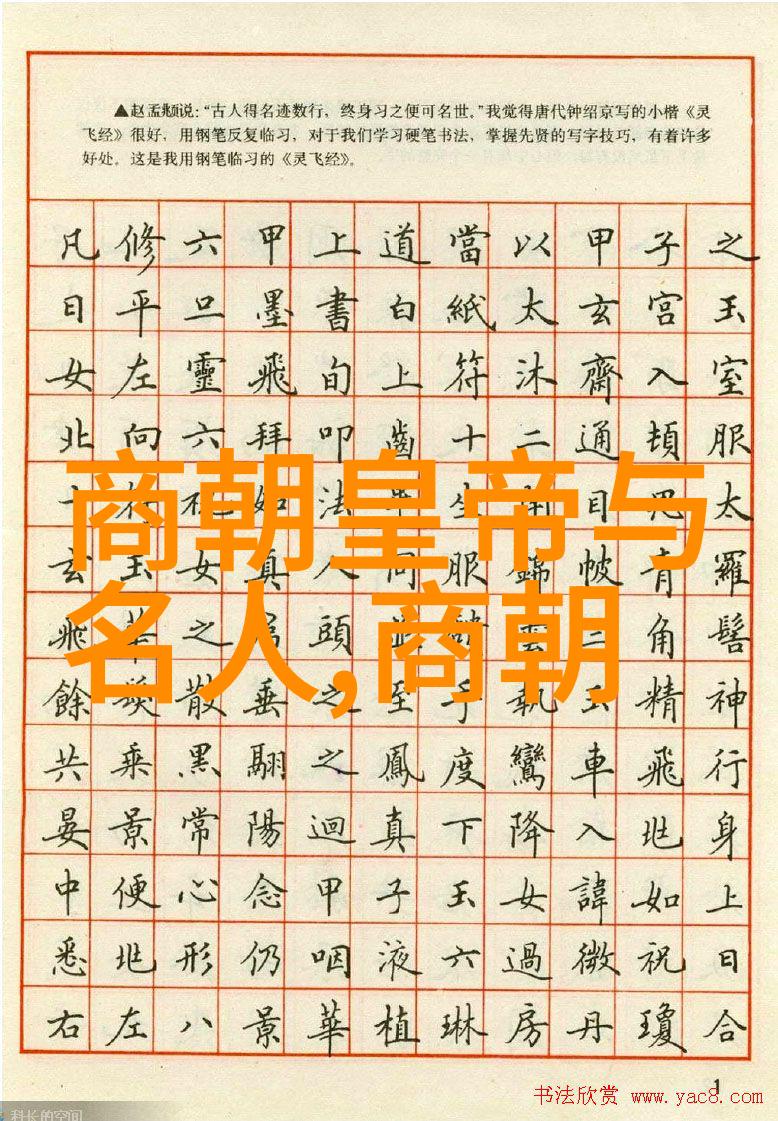 ▲赵孟頫说：“古人得名迹数行，终身习之便可名世。”我觉得唐代钟绍京写的小楷《灵
飞经》很好，用钢笔反复临习，对于我们学习硬笔书法，掌握先贤的写字技巧，有着许多
好处。这是我用钢笔临习的《灵飞经》。
凡修六甲上道當以甲子之
日平旦墨書白紙太玄宮玉
女左靈飛旬上符沐齋入室
北向六拜叩齒十二通頓服
十符祝如法坐閉目思太
玄玉女真人同服錦帔青羅
飛華之頭雲三角髻
餘髮散垂之至手執玉精神
共乘黑翮之鳳度鸞車飛行
晏景常陽迴真下降入兆身
中便心念甲子玉女諱如上
悉兆形仍咽液六過微祝曰
右左八景華植琳房丹瓊合
商朝皇帝与
名人,商朝
1
书法欣赏 www.yac8.com
科长的空间